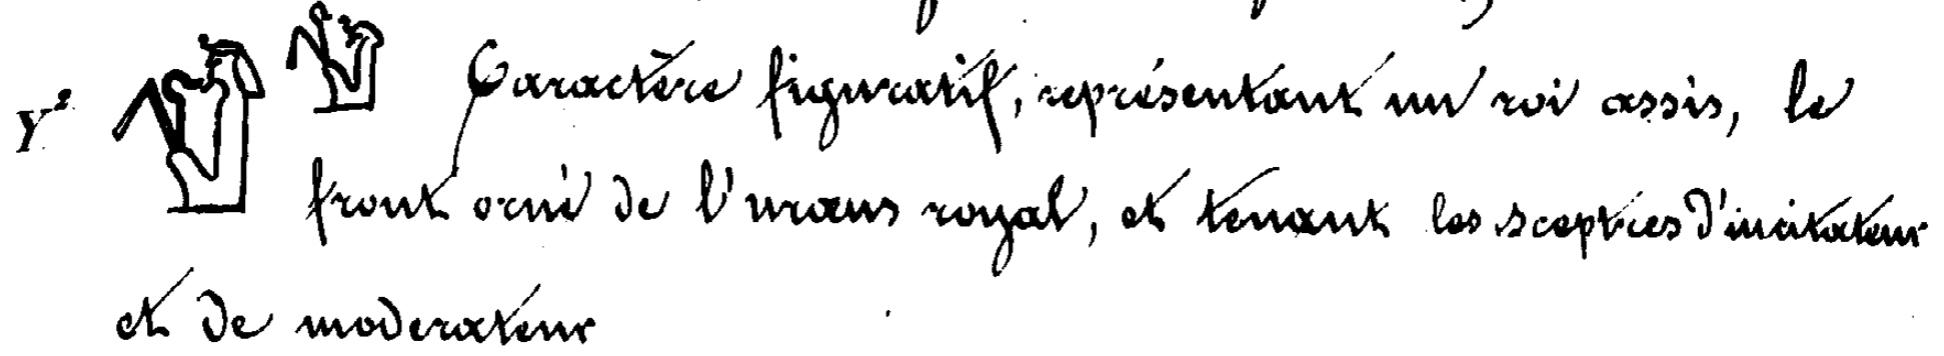 Y² Caractère figuratif, représentant un roi assis, le
front orné de l'uraus royal, et tenant les sceptres d'incitateur
et de moderateur